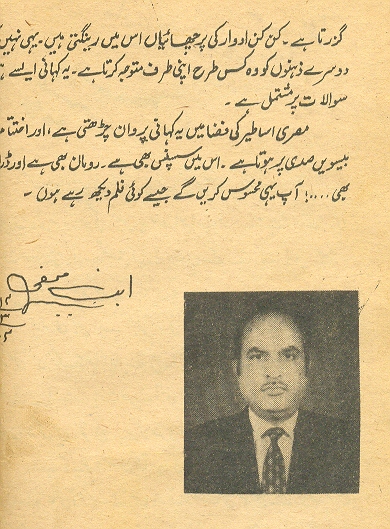 گزرتا ہے۔ کن کن ادوار کی پرچھائیاں اس میں رینگتی ہیں۔ یہی نہیں
دوسرے ذہنوں کو وہ کس طرح اپنی طرف متوجہ کرتا ہے۔ یہ کہانی ایسے
سوالات پر مشتمل ہے۔
مصری اساطیر کی فضا میں یہ کہانی پروان چڑھتی ہے، اور اختتام
بیسویں صدی پر ہوتا ہے۔ اس میں سسپنس بھی ہے۔ رومان بھی ہے اور
بھی ....! آپ یہی محسوس کریں گے جیسے کوئی فلم دیکھ رہے ہوں۔
ابن صفی